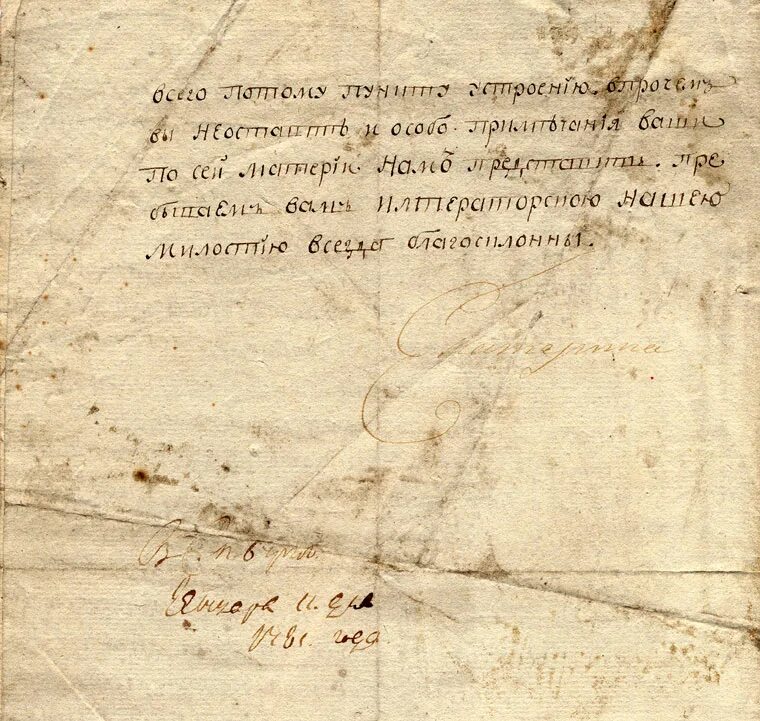 всего потому пункту устроенїю. впрочемъ
вы неоставите и особо примѣчанїя ваши
по сей матерїи намъ представить. пре
бываемъ вамъ императорскою нашею
милостїю всегда благосклонны.
Екатерина
В С: п бурхѣ
Генваря 11. дня
1781. года